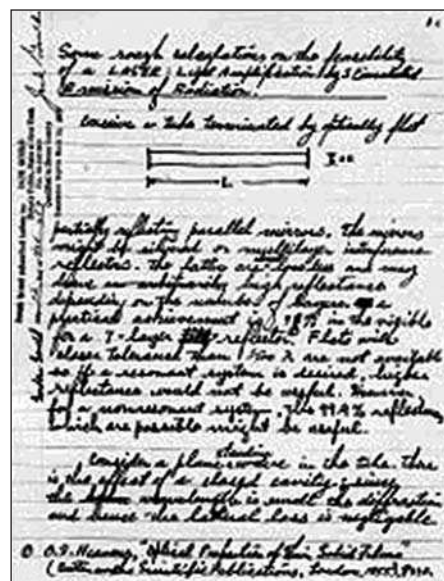 Some rough calculations on the feasibility
of a LASER: Light Amplification by Stimulated
Emission of Radiation.
conceive a tube terminated by optically flat
L
partially reflecting parallel mirrors. The mirrors
might be silvered or multilayer interference
reflectors. The latter are lossless and may
have high reflectance
depending on the number of layers. a
practical achievement is 98% in the visible
for a 7-layer reflector. Flats with
closer tolerance than λ are not available
so if a resonant system is desired, higher
reflectance would not be useful. However
for a nonresonant system, the 99.9% reflectances
which are possible might be useful.
Consider a plane standing wave in the tube. There
is the effect of a closed cavity; since
the wavelength is small the diffraction
and hence the lateral loss is negligible.
O.S. Heavens, "Optical Properties of Thin Solid Films"
(Butterworths Scientific Publications, London, 1955)